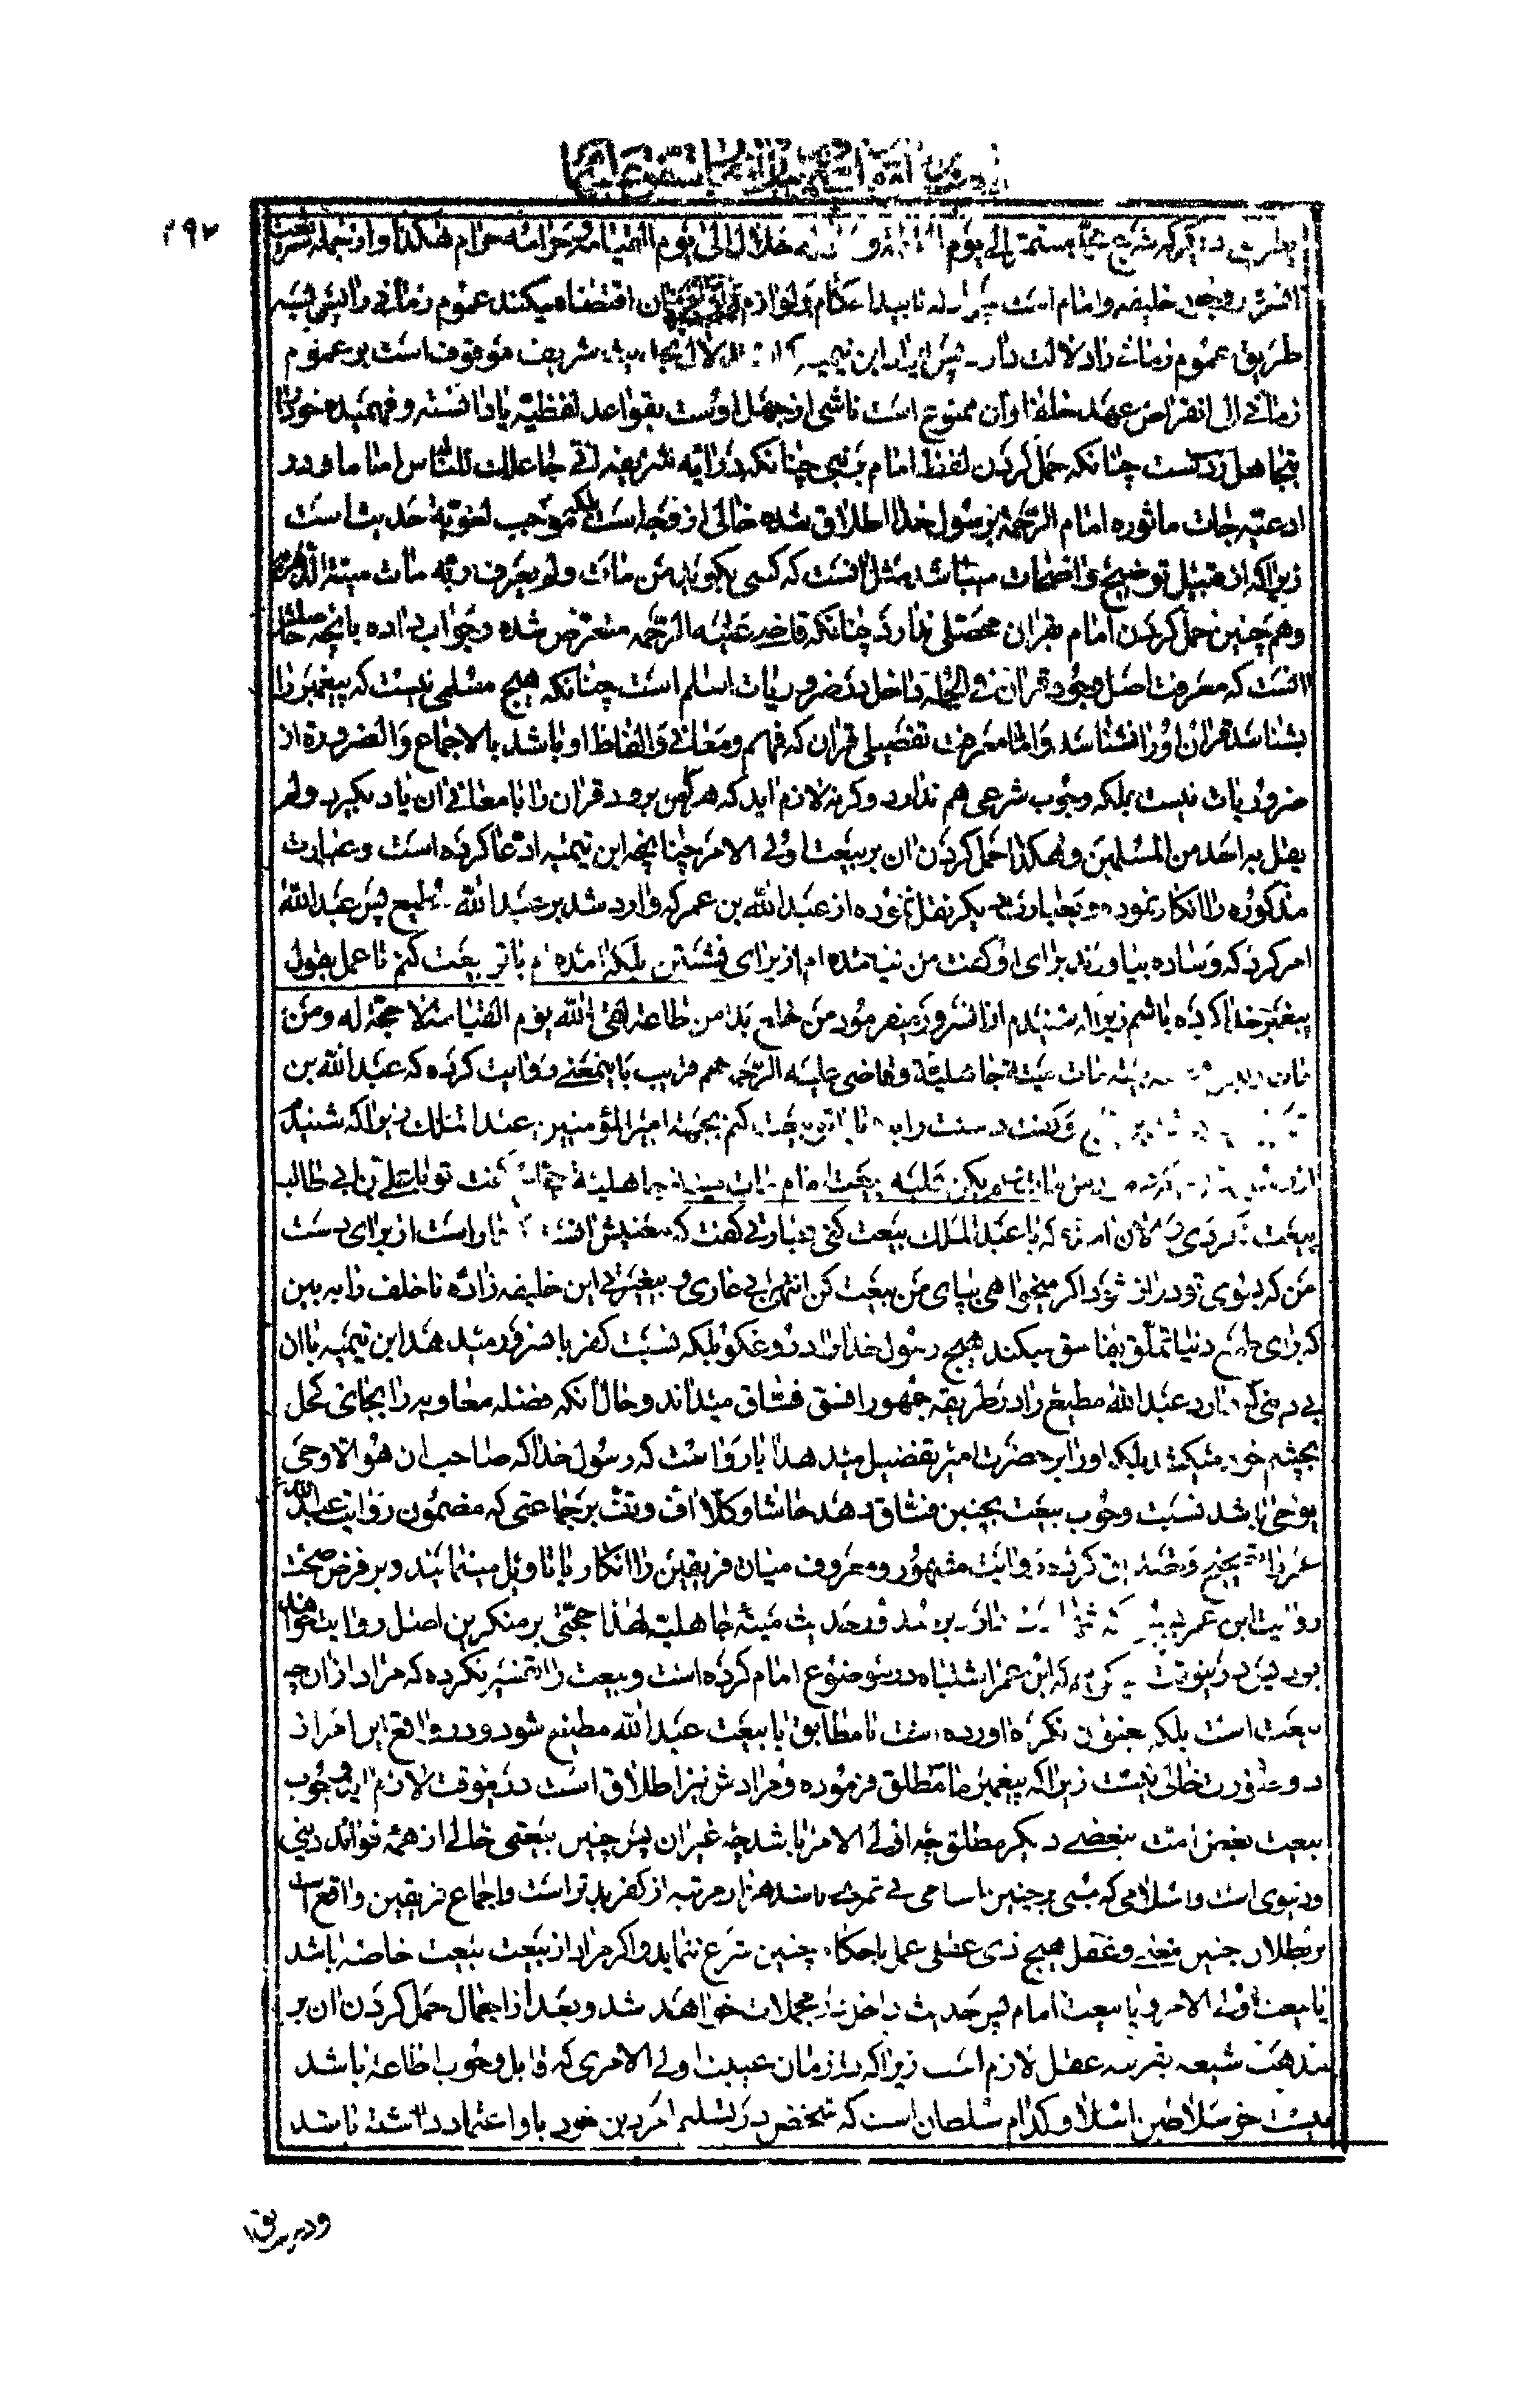 ۲۹۲
بطریق دیگر که شرع محمد مستمر الی یوم القیامة و حلاله حلال الی یوم القیامة و حرامه حرام هکذا و از جمله شریعت
انسرور وجود خلیفه و امام است پس را که تابید احکام و لوازم ان اقتضاء میکند عموم زمانی را پس بهمه
طریق عموم زمانی را دلالت دارد پس ایراد ابن تیمیه که استدلال بحدیث شریف موقوف است بر عموم
زمانی الی انقراض عهد خلفا و ان ممنوع است ناشی از جهل اوست بقواعد لفظیه یا دانسته و فهمیده خود را
بتجاهل زدنست چنانکه حمل کردن لفظ امام بر نبی چنانکه در ایه شریفه انی جاعلک للناس اماما و در
ادعیه جات ماثوره امام الرحمة بر رسول خدا اطلاق شده خالی از وجه است بلکه موجب لغویة حدیث است
زیرا که از قبیل توضیح واضحات میباشد مثل انست که کسی بکوید من مات ولم یعرف ربه مات میتة
وهم چنین حمل کردن امام بقران محصلی ندارد چنانکه قاضی علیه الرحمه متعرض شده و جواب داده بانچه حاصلش
انست که معرفت اصل وجود قران فی الجمله داخل در ضروریات اسلم است چنانکه هیچ مسلمی نیست که پیغمبر را
بشناسد قران او را نشناسد و اما معرفت تفصیلی قران که فهم و معانی و الفاظ او باشد بالاجماع و الضرورة از
ضروریات نیست بلکه وجوب شرعی هم ندارد و کرنه لازم اید که هر کس برود قران را با معانی ان یاد بکیرد و لم
یقل به احد من المسلمین و هکذا حمل کردن ان بر بیعت اولی الامر چنانچه ابن تیمیه ادعا کرده است و عبارت
مذکوره را انکار نموده و بعبارت دیکر نقل نموده از عبد الله بن عمر که وارد شد بر عبد الله مطیع پس عبد الله
امر کرد که وساده بیاورند برای او کفت من نیامده ام از برای نشستن بلکه امده ام با تو بیعت کنم تا عمل بقول
پیغمبر خدا کرده باشم زیرا که شنیدم از انسرور میفرمود من خلع یدا من طاعة لقی الله یوم القیامة لا حجة له و من
مات میتة جاهلیة و قاضی علیه الرحمه هم قریب باینمعنی روایت کرده که عبد الله بن
و کفت دست را بده تا با تو بیعت کنم بجهة امیر المؤمنین عبد الملک زیرا که شنیدم
یکن علیه بیعت امام مات میتة جاهلیة کفت تو با علی بن ابی طالب
بیعت نکردی الان امده که با عبد الملک بیعت کنی عبارتی کفت که معنیش انست عار است از برای دست
من که بسوی تو دراز شود اکر میخواهی بپای من بیعت کن انتهی بی عاری و بیغیرتی این خلیفه زاده ناخلف را به بین
که برای طمع دنیا تملق بفاسق میکند هیچ رسول خدا را دروغکو بلکه نسبت کفر بانسرور میدهد ابن تیمیه با ان
بی دینی که دارد عبد الله مطیع را در طریقه جمهور افسق فساق میداند و حال انکه فضله معاویه را بجای کحل
بچشم خود میکشد بلکه او را بر حضرت امیر تفضیل میدهد ایا رواست که رسول خدا که صاحب ان هو الا وحی
یوحی باشد نسبت وجوب بیعت بچنین فساق دهد حاشا و کلا اف و تف بر جماعتی که مضمون روایت عبد الله
عمر را تصحیح و تصدیق کرده روایت مشهور و معروف میان فریقین را انکار یا تاویل مینمایند و بر فرض صحت
روایت ابن عمر در حدیث میتة جاهلیة لهذا حجتی بر منکرین اصل روایت خواهد
بود پس در اینوقت که ابن عمر اشتباه در موضوع امام کرده است و بیعت را تمیز نکرده که مراد از ان چه
بیعت است بلکه بعنوان نکره اورده است تا مطابق با بیعت عبد الله مطیع شود و در واقع این امر از
دو صورت خالی نیست زیرا که پیغمبر ما مطلق فرموده و مرادش نیز اطلاق است در اینوقت لازم اید وجوب
بیعت بعض امت ببعضی دیکر مطلق چه اولی الامر باشد چه غیر ان پس چنین بیعتی خالی از همه فوائد دینی
و دنیوی است و اسلامی که مبنی بر چنین اساسی بی ثمری باشد هزار مرتبه از کفر بدتر است و اجماع فریقین واقع است
بر بطلان چنین معنی و عقل هیچ ذی عقلی عمل باحکام چنین شرع ننماید و اکر مراد از بیعت بیعت خاصه باشد
یا بیعت اولی الامر و یا بیعت امام پس حدیث داخل در مجملات خواهد شد و بعد از اجمال حمل کردن ان بر
مذهب شیعه بقرینه عقل لازم است زیرا که در زمان غیبت اولی الامری که قابل وجوب اطاعة باشد
نیست جز سلاطین اسلام و کدام سلطان است که شخص در تسلیم امر دین خود باو اعتماد داشته باشد